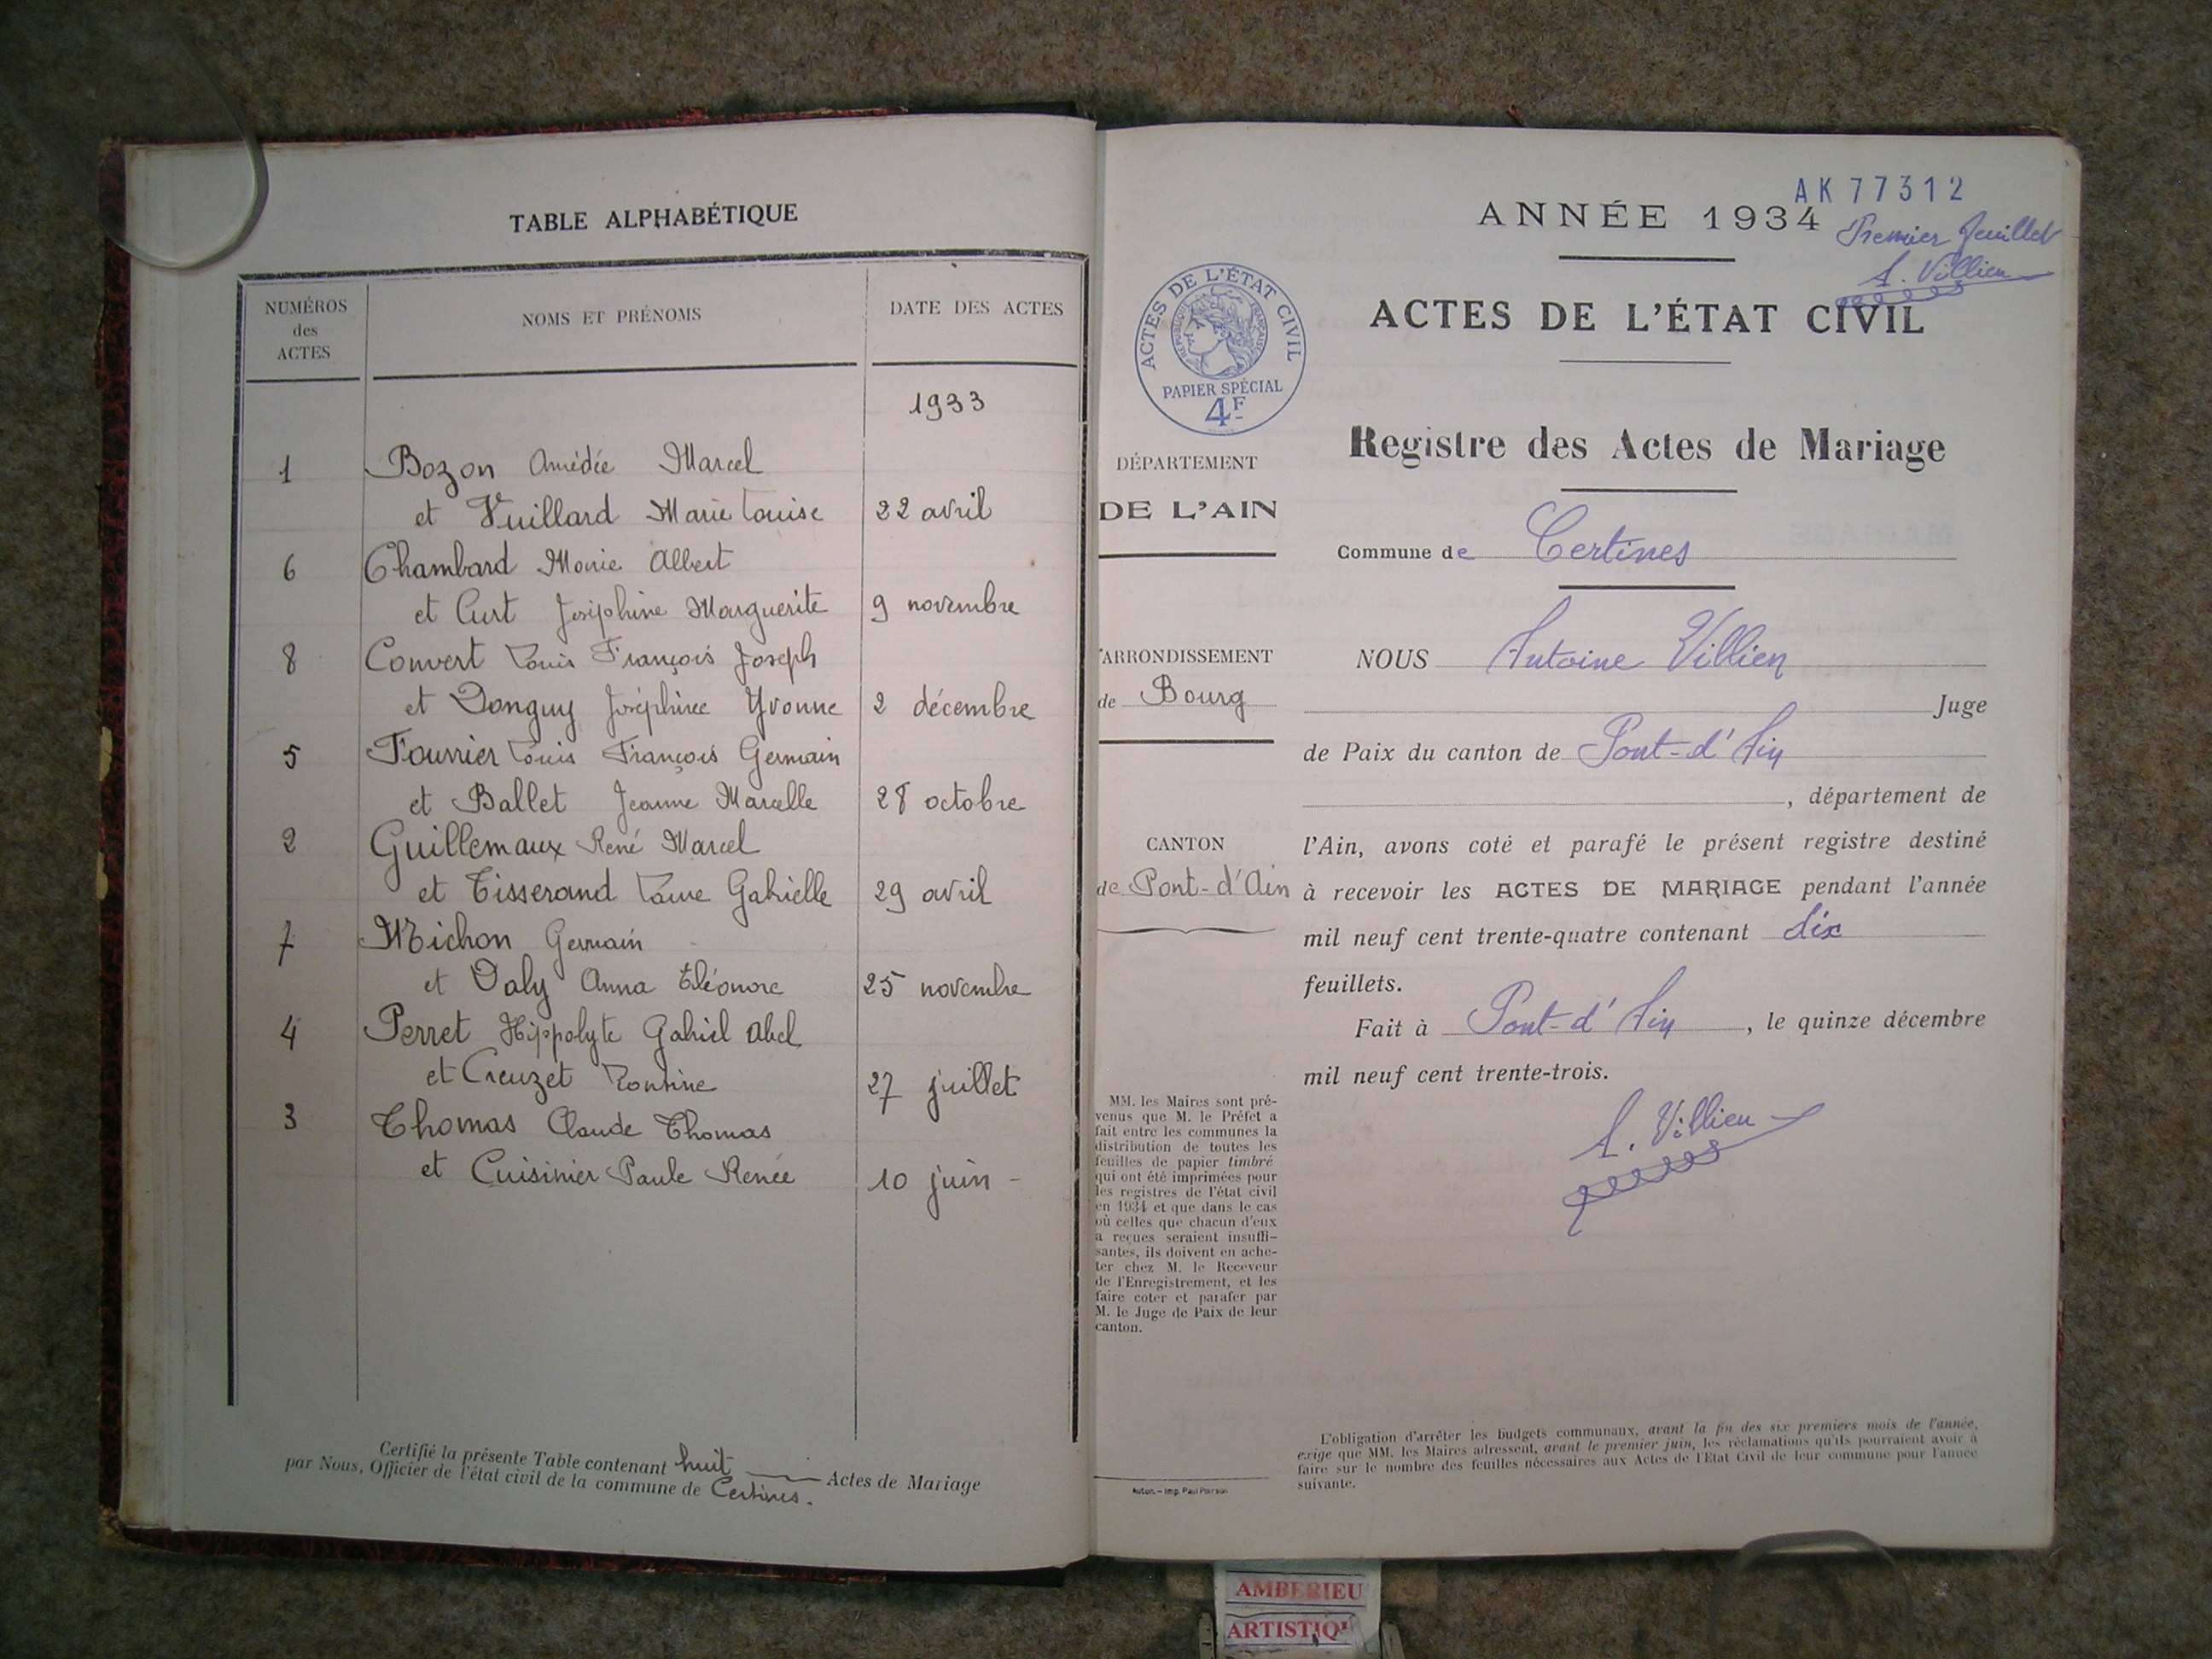 TABLE ALPHABÉTIQUE
NUMÉROS
des
ACTES
NOMS ET PRÉNOMS
DATE DES ACTES
1933
1 Bozon Amédée Marcel
et Vuillard Marie Louise 22 avril
6 Chambard Marie Albert
et Curt Joséphine Marguerite 9 novembre
8 Convert Louis François Joseph
et Donguy Joséphine Yvonne 2 décembre
5 Fournier Louis François Germain
et Ballet Jeanne Marcelle 28 octobre
2 Guillemaux René Marcel
et Tisserand Laure Gabrielle 29 avril
7 Michon Germain
et Daly Anna Eléonore 25 novembre
4 Perret Hippolyte Gabriel Abel
et Creuzet 27 juillet
3 Thomas Claude Thomas
et Cuisinier Paule Renée 10 juin -
Certifié la présente Table contenant huit Actes de Mariage
par Nous, Officier de l'état civil de la commune de Certines.
AK 77312
ANNÉE 1934
Premier feuillet
A. Villien
ACTES DE L'ÉTAT CIVIL
ACTES DE L'ÉTAT CIVIL
RÉPUBLIQUE FRANÇAISE
PAPIER SPÉCIAL
4F
Registre des Actes de Mariage
DÉPARTEMENT
DE L'AIN
Commune de Certines
ARRONDISSEMENT
de Bourg
CANTON
de Pont-d'Ain
NOUS Antoine Villien
Juge
de Paix du canton de Pont-d'Ain
, département de
l'Ain, avons coté et parafé le présent registre destiné
à recevoir les ACTES DE MARIAGE pendant l'année
mil neuf cent trente-quatre contenant dix
feuillets.
Fait à Pont-d'Ain, le quinze décembre
mil neuf cent trente-trois.
A. Villien
MM. les Maires sont pré-
venus que M. le Préfet a
fait entre les communes la
distribution de toutes les
feuilles de papier timbré
qui ont été imprimées pour
les registres de l'état civil
en 1934 et que dans le cas
où celles que chacun d'eux
a reçues seraient insuffi-
santes, ils doivent en ache-
ter chez M. le Receveur
de l'Enregistrement, et les
faire coter et parafer par
M. le Juge de Paix de leur
canton.
L'obligation d'arrêter les budgets communaux, avant la fin des six premiers mois de l'année,
exige que MM. les Maires adressent, avant le premier juin, les réclamations qu'ils pourraient avoir à
faire sur le nombre des feuilles nécessaires aux Actes de l'Etat Civil de leur commune pour l'année
suivante.
Imp. Paul
AMBERIEU
ARTISTIQ